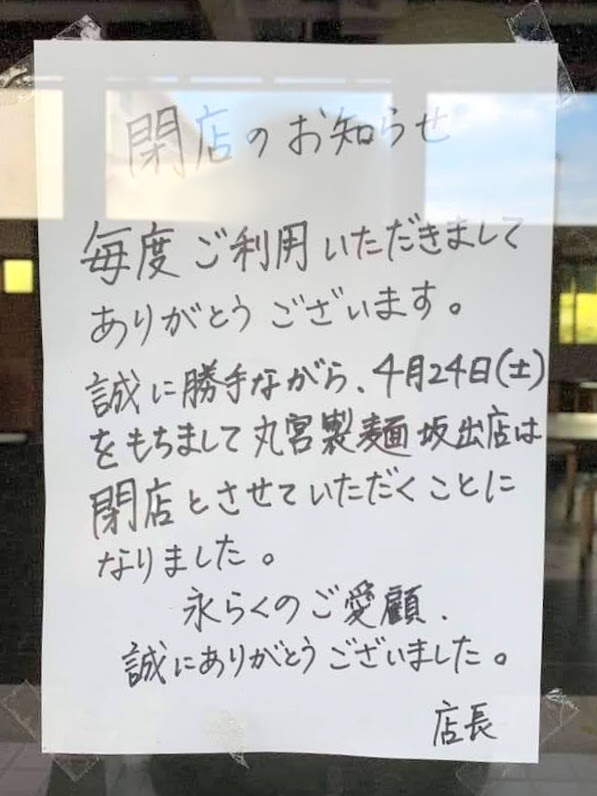 閉店のお知らせ
毎度ご利用いただきまして
ありがとうございます。
誠に勝手ながら、4月24日(土)
をもちまして丸宮製麺 坂出店は
閉店とさせていただくことに
なりました。
永らくのご愛顧、
誠にありがとうございました。
店長